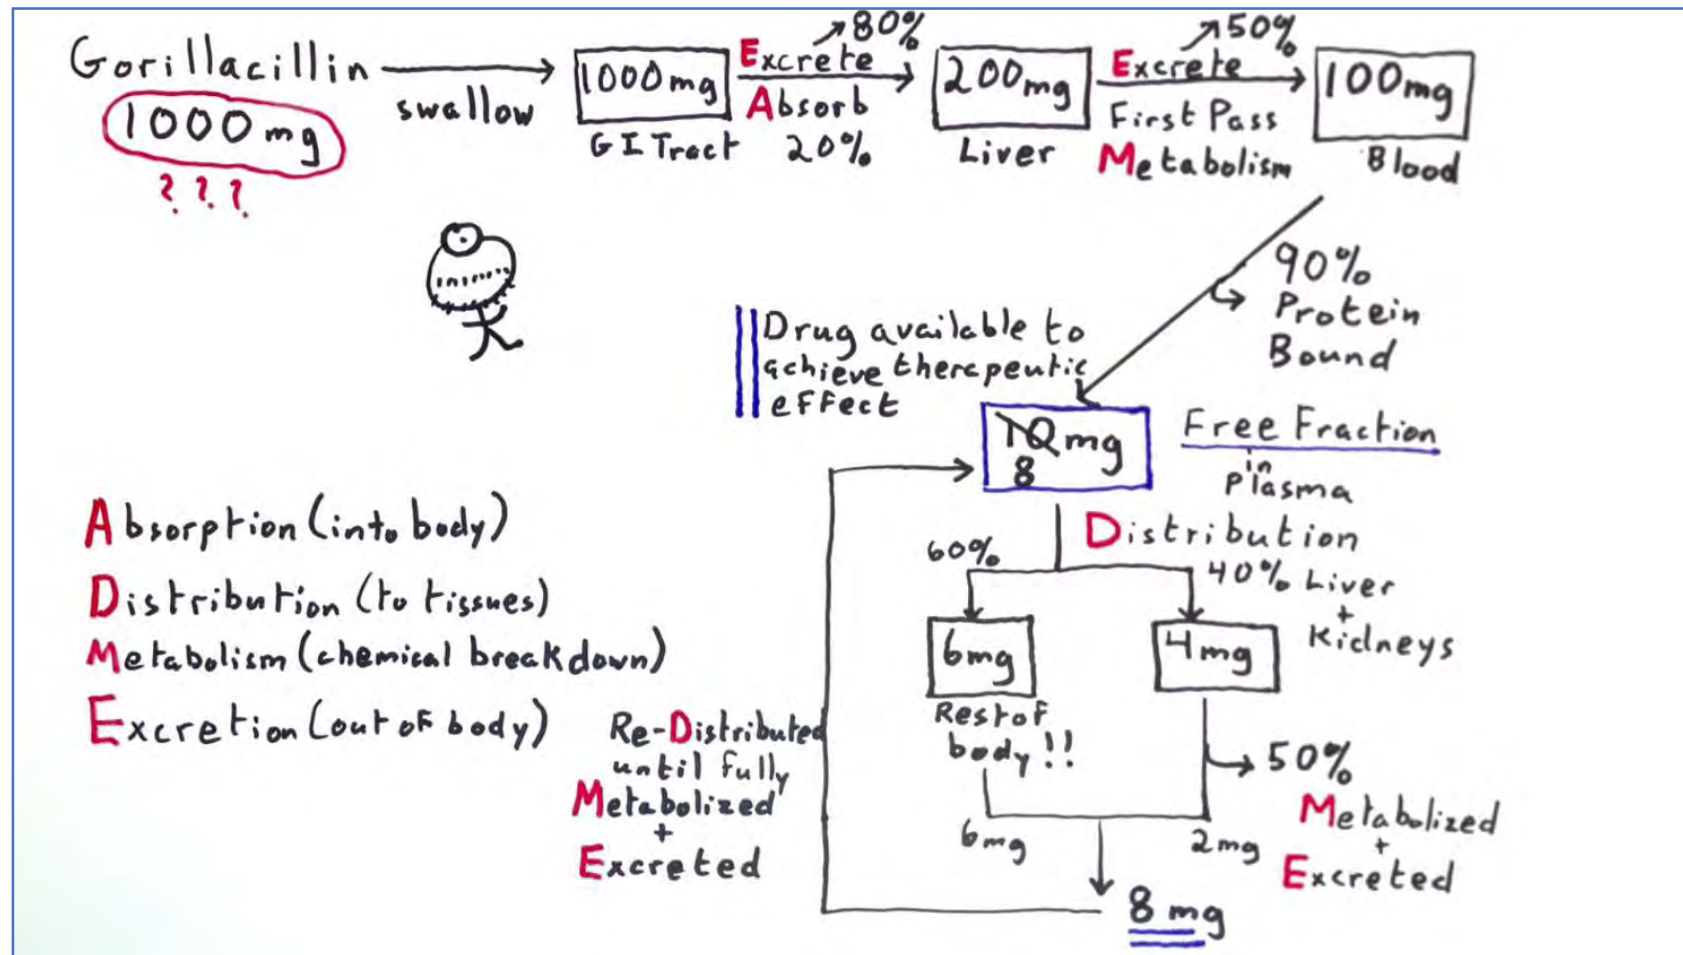 Gorillacillin
1000mg
? ? ?
swallow
1000mg
GI Tract
↗80%
Excrete
Absorb
20%
200mg
Liver
↗50%
Excrete
First Pass
Metabolism
100mg
Blood
90%
Protein
Bound
Drug available to
achieve therapeutic
effect
10mg
8
Free Fraction
in
plasma
Distribution
60%
40% Liver
+
Kidneys
6mg
Rest of
body!!
4mg
50%
Metabolized
+
Excreted
6mg
2mg
8mg
Re-Distributed
until fully
Metabolized
+
Excreted
Absorption (into body)
Distribution (to tissues)
Metabolism (chemical breakdown)
Excretion (out of body)